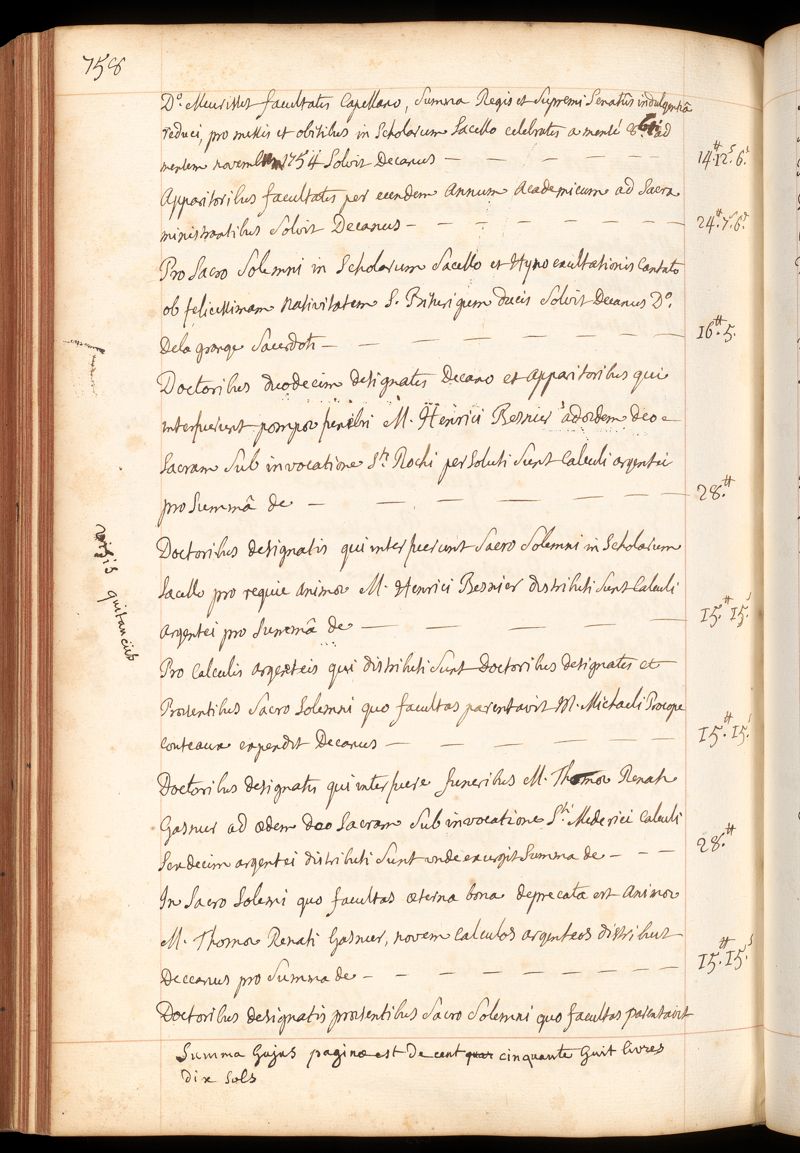 758
D.o Meurisset facultatis Capellano, Summa Regis et Supremi Senatûs indulgentiâ
reduci, pro missis et obitibus in Scholarum Sacello celebratis a mense 8.bri ad
mensem novembrem 1754 Solvit Decanus — — — — — — 14.tt 12.s 6.d
Apparitoribus facultatis per eundem Annum Academicum ad Sacra
ministrantibus Solvit Decanus — — — — — — — 24.tt 7.s 6.d
Pro Sacro Solemni in Scholarum Sacello et Hyno exultationis Cantato
ob felicissimam Nativitatem S. Biturigum ducis Solvit Decanus D.o
Dela grange Sacerdoti — — — — — — — — 16.tt 5.
Doctoribus duodecim designatis Decano et apparitoribus qui
interfuerunt pompæ funebri M. Henrici Besnier ad ædem deo
Sacram Sub invocatione S.ti Rochi persoluti Sunt Calculi argentei
pro Summâ de — — — — — — — 28.tt
Doctoribus designatis qui interfuerunt Sacro Solemni in Scholarum
Sacello pro requie animæ M. Henrici Besnier distributi Sunt Calculi
argentei pro Summâ de — — — — — 15.tt 15.s
Pro Calculis argenteis qui distributi Sunt Doctoribus designatis et
Præsentibus Sacro Solemni quo facultas parentavit M. Michaeli Procope
Couteaux expendit Decanus — — — — — — 15.tt 15.s
Doctoribus designatis qui interfuere funeribus M. Thomæ Renati
Gasnier ad ædem deo Sacram Sub invocatione S.ti Mederici Calculi
Sexdecim argentei distributi Sunt unde exurgit Summa de — — — 28.tt
In Sacro Solemni quo facultas æterna bona deprecata est Animæ
M. Thomæ Renati Gasnier, novem calculos argenteos distribuit
Deccanus pro Summa de — — — — — — — 15.tt 15.s
Doctoribus designatis præsentibus Sacro Solemni quo facultas parentavit
Summa hujus paginæ est de cent cinquante huit livres
dix sols
visis quitanciis